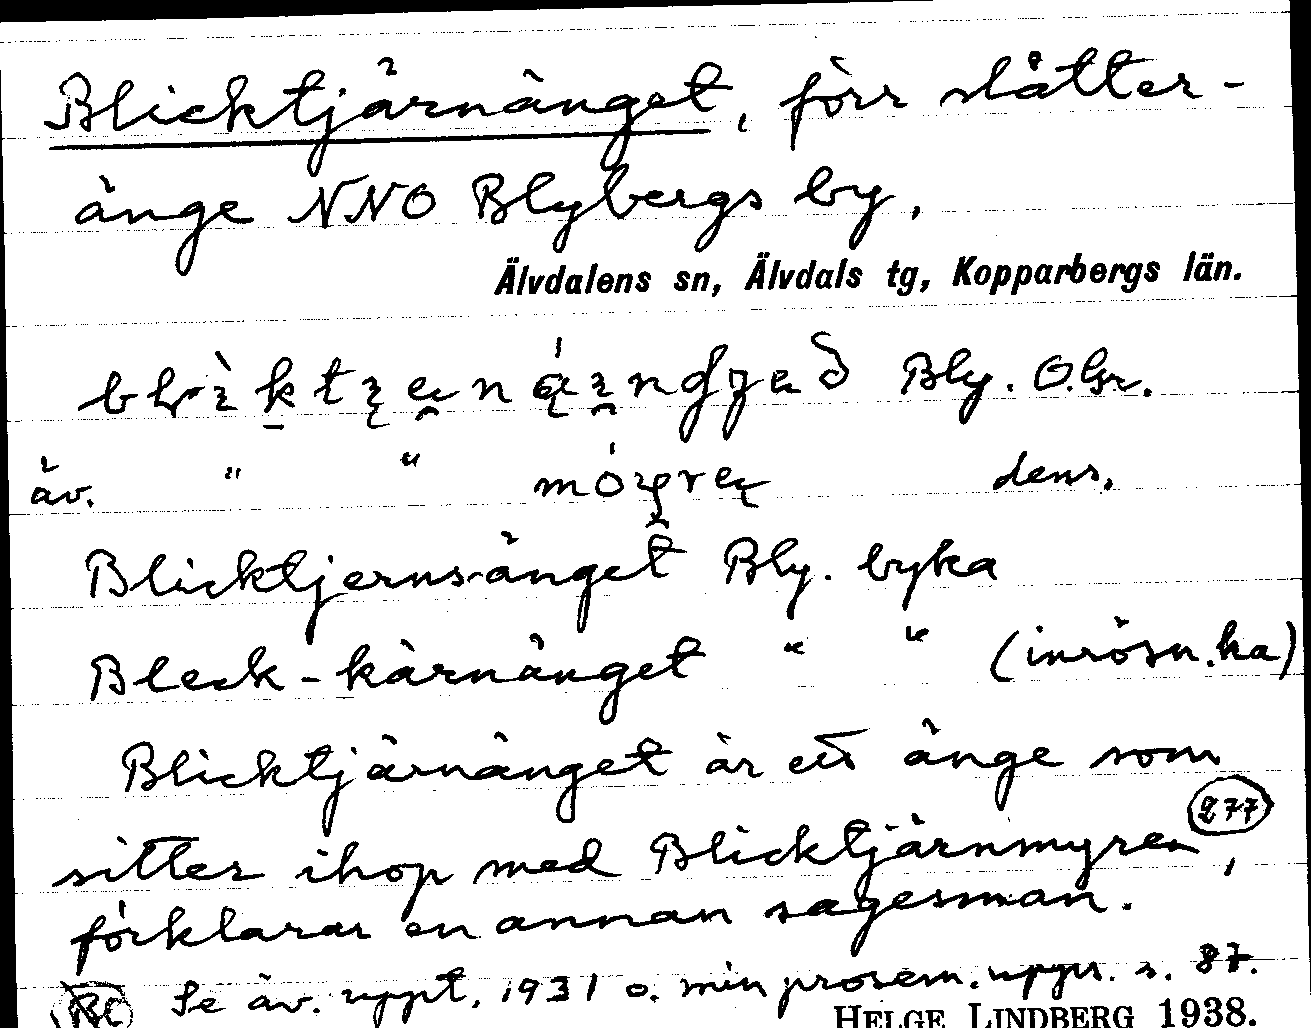 Blicktjärnänget, förr slåtter-
änge NNO Blybergs by,
Älvdalens sn, Älvdals tg, Kopparbergs län.
Bly. O.Gr.
äv. " " dens.
Blicktjernsänget Bly. byka
Bleck-kärnänget " " (inrösn.ka)
Blicktjärnänget är ett änge som
sitter ihop med Blicktjärnmyren (277),
förklarar en annan sagesman.
Se äv. uppt. 1931 o. min prosem. upps. s. 87.
HELGE LINDBERG 1938.